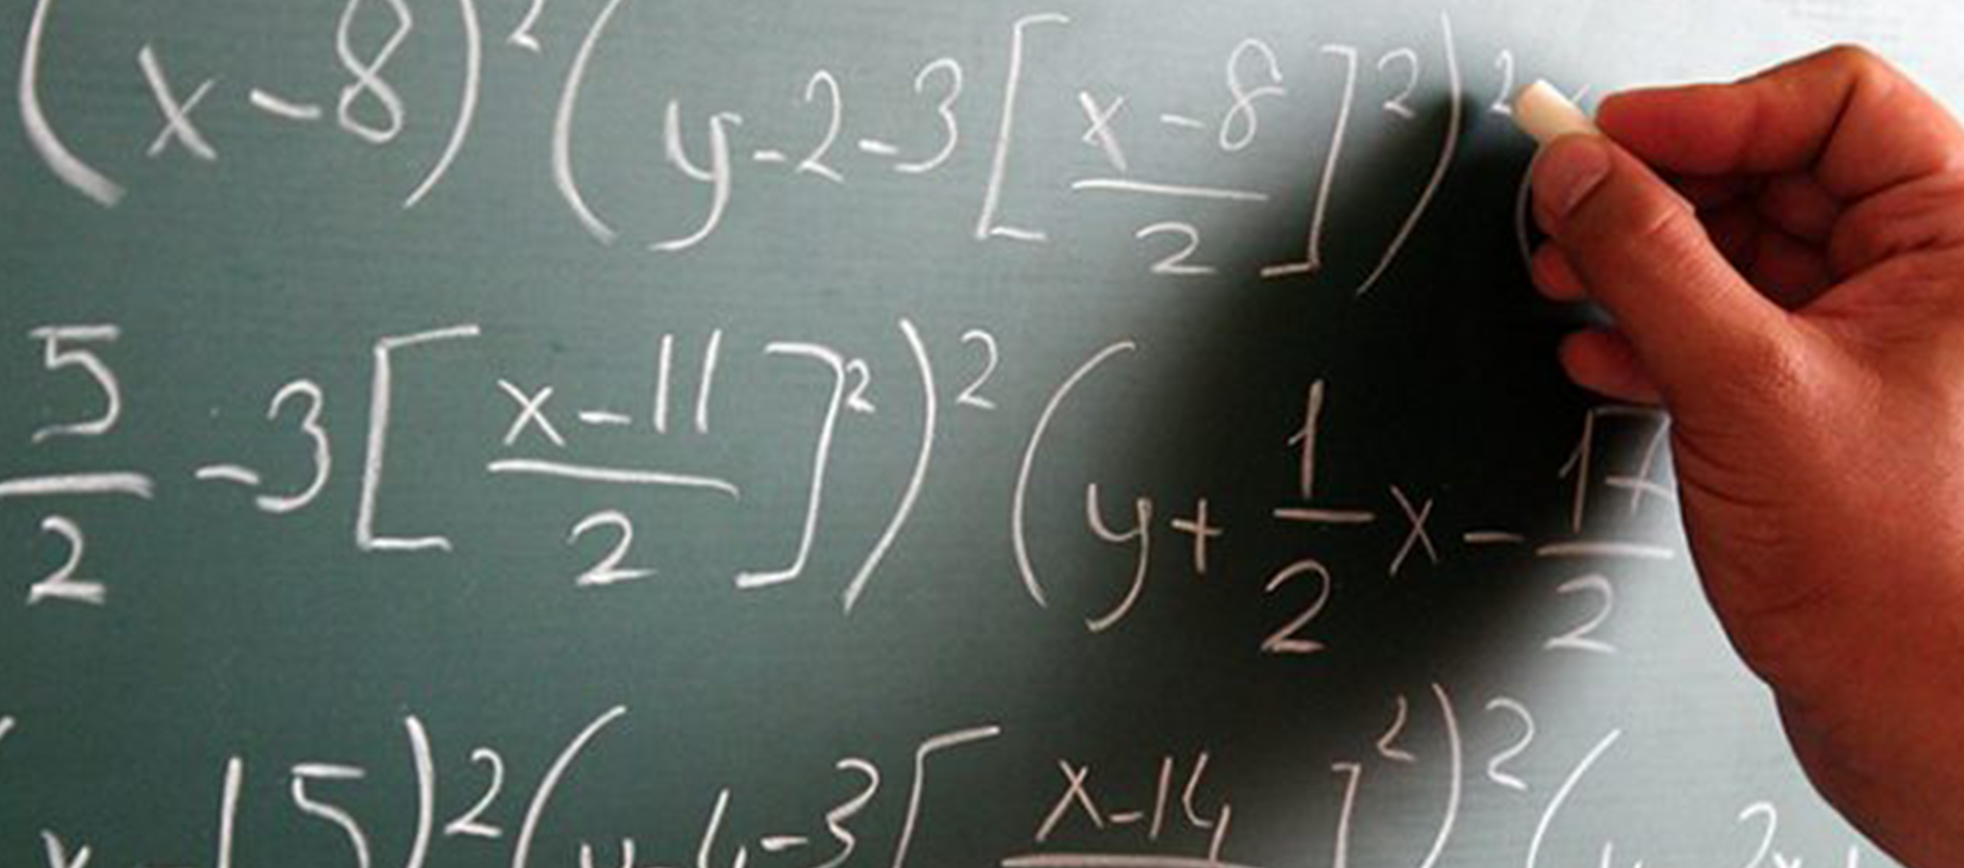 (x-8)²(y-2-3[\frac{x-8}{2}]²)²(
\frac{5}{2}-3[\frac{x-11}{2}]²)²(y+\frac{1}{2}x-\frac{17}{2}
x-15)²(y-4-3[\frac{x-14}{}]²)²(y-2x